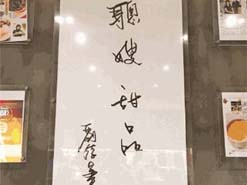 聰嫂甜品